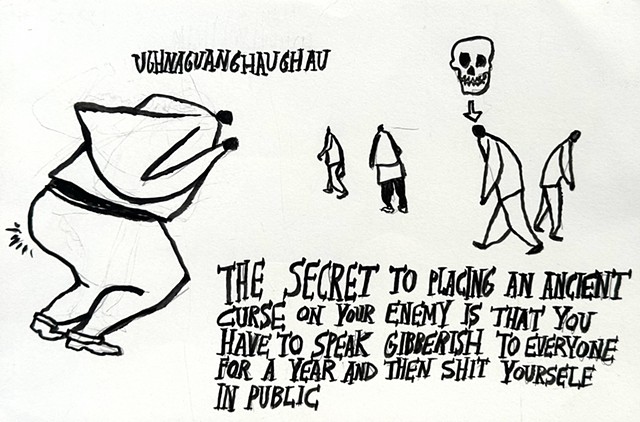 UGHNAGUANGHAUGHAU
THE SECRET TO PLACING AN ANCIENT
CURSE ON YOUR ENEMY IS THAT YOU
HAVE TO SPEAK GIBBERISH TO EVERYONE
FOR A YEAR AND THEN SHIT YOURSELF
IN PUBLIC